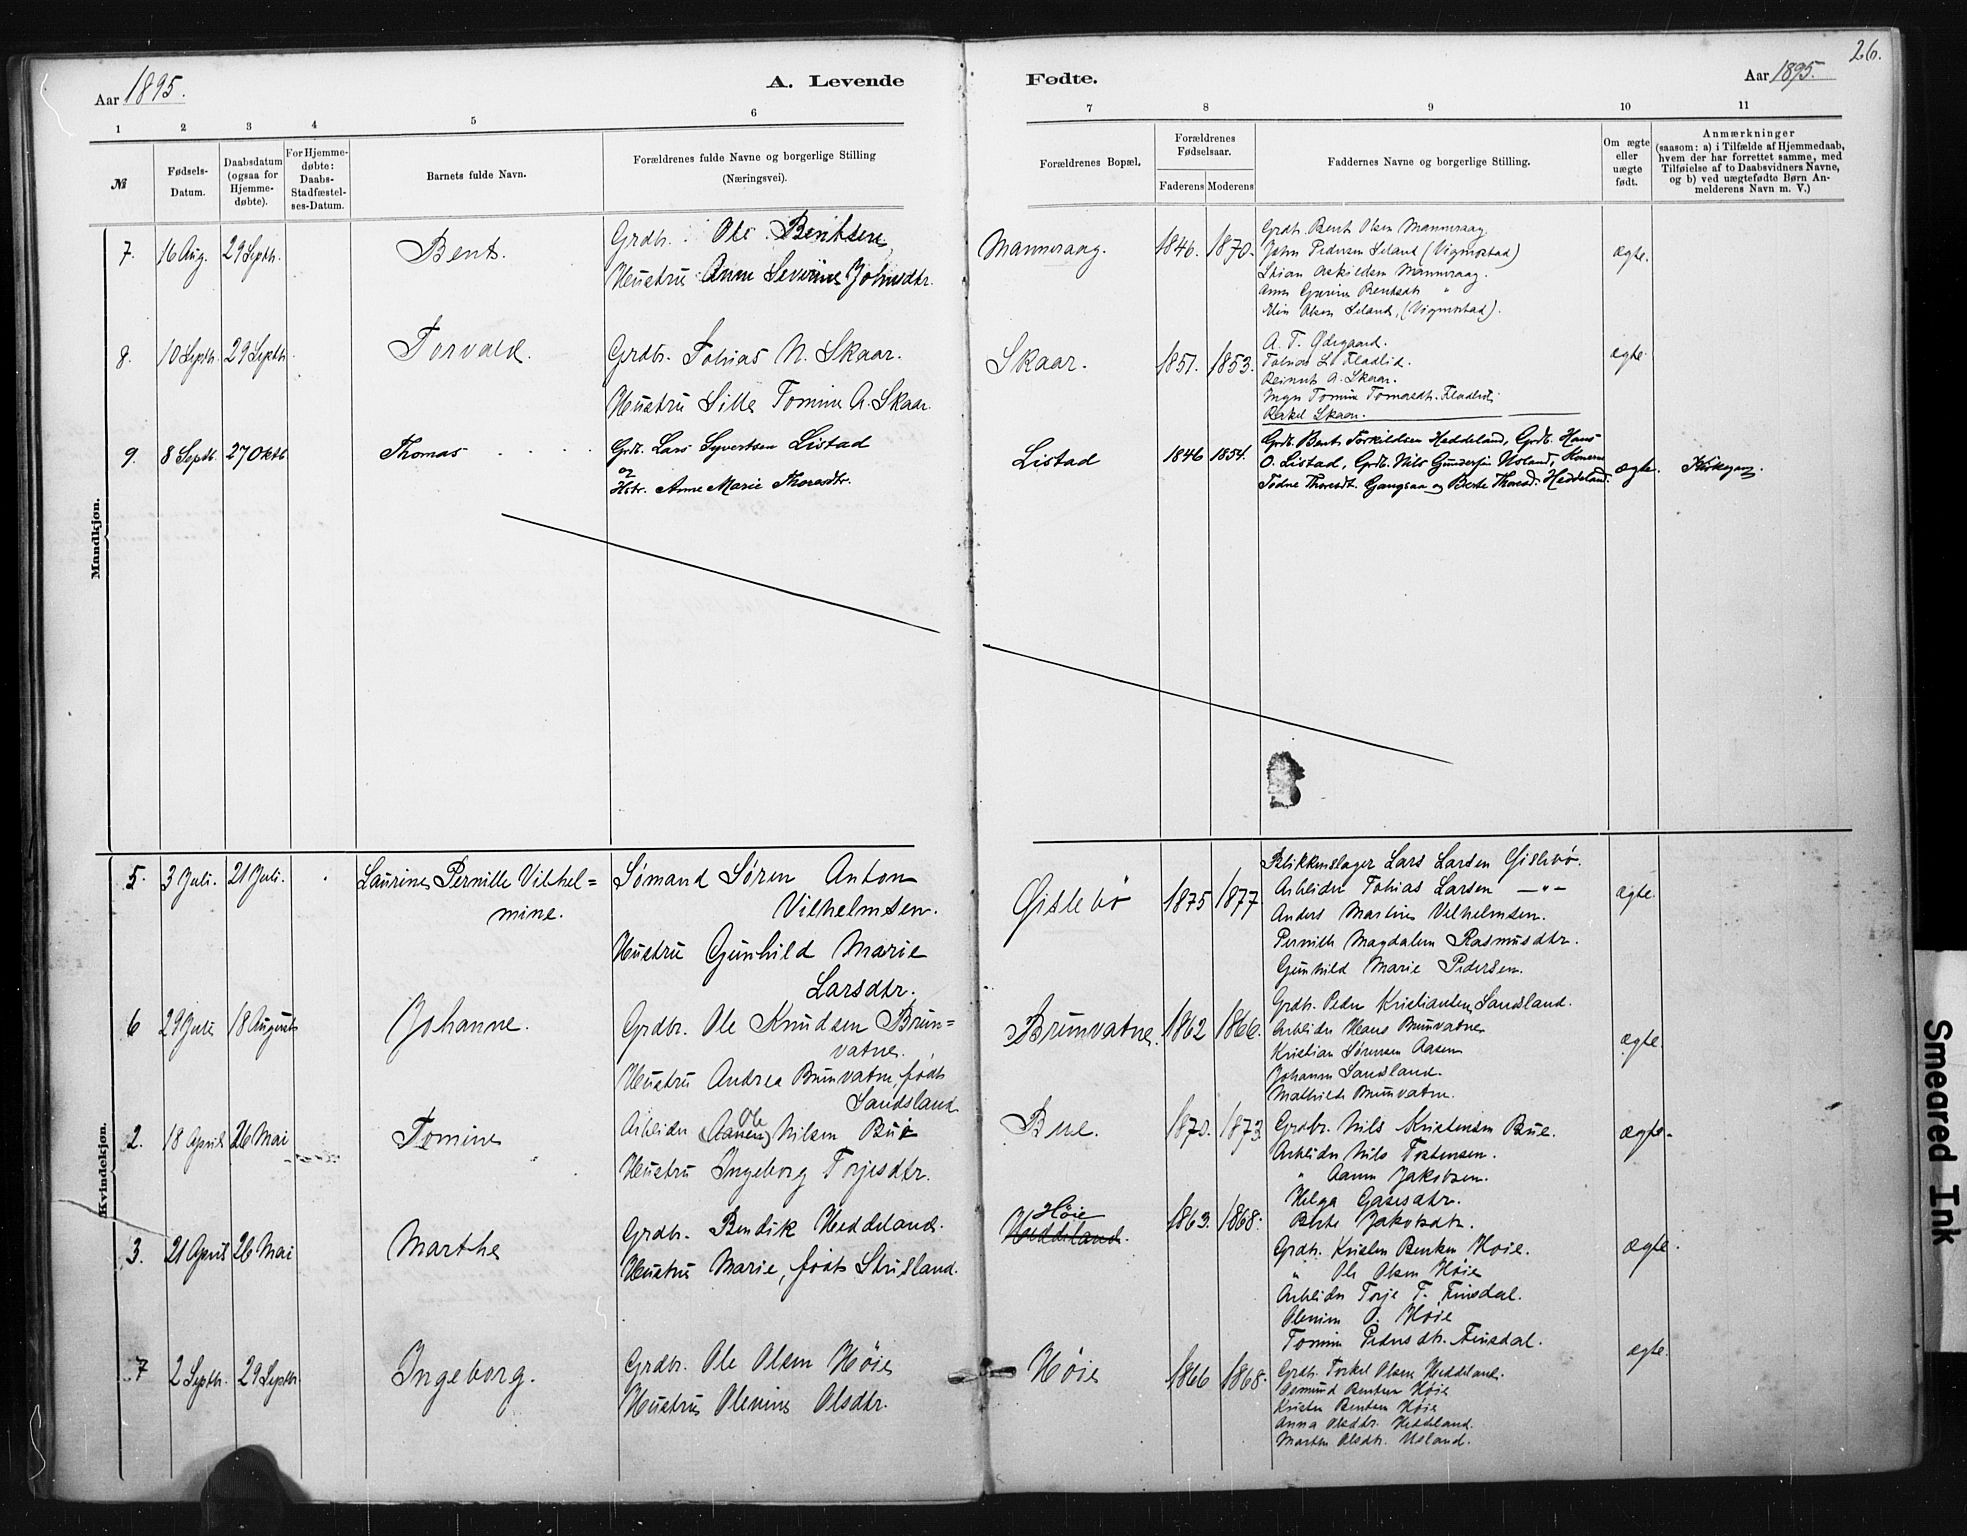 26.
Aar 1895. A. Levende Fødte. Aar 1895.
1 2 3 4 5 6 7 8 9 10 11
№
Fødsels-
Datum.
Daabsdatum
(ogsaa for
Hjemme-
døbte).
For Hjemme-
døbte:
Daabs-
Stadfæstel-
ses-Datum.
Barnets fulde Navn.
Forældrenes fulde Navne og borgerlige Stilling
(Næringsvei).
Forældrenes Bopæl.
Forældrenes
Fødselsaar.
Faderens Moderens
Faddernes Navne og borgerlige Stilling.
Om ægte
eller
uægte
født.
Anmærkninger
(saasom: a) i Tilfælde af Hjemmedaab,
hvem der har forrettet samme, med
Tilføielse af to Daabsvidners Navne,
og b) ved uægtefødte Børn An-
melderens Navn m. V.)
Mandkjøn.
7. 16 Aug. 29 Septb. Bent.
Grdbr. Ole Bentsen
Hustru Anne Severine Johnsdtr.
Mannraag. 1846. 1870.
Grdb. Bent Olsen Mannraag.
John Pedersen Leland (Vigmostad)
Stian Askildsen Mannraag.
Anne Gurine Bentsdtr "
Elin Olsen Leland, (Vigmostad).
ægte.
8. 10 Septb. 29 Septb. Torvald.
Grdbr. Tobias N. Skaar.
Hustru Sille Tomine A. Skaar.
Skaar. 1851. 1853.
A. T. Ødegaard.
Tobias L. Fladlid.
Reinert A. Skaar.
Inger Tomine Tomasdtr. Fladlid
Rakel Skaar.
ægte.
9. 8 Septb. 27 Oktb Thomas
Grdb. Lars Syvertsen Listad
og
Hstr. Anne Marie Thoresdtr.
Listad 1846 1854.
Grdb. Bent Torkildsen Heddeland, Grdb. Hans
O. Listad, Grdb. Nils Gundersen Usland, Konerne
Todne Thoresdt. Gangsaa og Berte Thoresd. Heddeland.
ægte. Kirkegang.
Kvindekjøn.
5. 3 Juli. 21 Juli. Laurine Pernille Vilhel=
mine.
Sømand Søren Anton
Vilhelmsen.
Hustru Gunhild Marie
Larsdtr.
Gislebø 1875 1877
Blikkenslager Lars Larsen Gislebø.
Arbeider Tobias Larsen —"—
Anders Martin Vilhelmsen.
Pernille Magdalene Rasmusdtr.
Gunhild Marie Pedersen.
ægte.
6 29 Juli 18 August Johanne.
Grdbr. Ole Knudsen Brun=
vatne.
Hustru Andrea Brunvatne, født
Sandsland
Brunvatne. 1862 1866.
Grdbr. Peder Kristiansen Sandsland.
Arbeider Hans Brunvatne
Kristian Sørensen Aasen
Johanne Sandsland.
Mathilde Brunvatne.
ægte.
2. 18 April 26 Mai Tomine
Ole
Arbeider (Aanen) Nilsen Bue
Hustru Ingeborg Torjesdtr.
Bue. 1870. 1873
Grdbr. Nils Kristensen Bue.
Arbeider Nils Tostensen.
" Aanen Jakobsen.
Helga Gasesdtr.
Berte Jakobsdtr.
ægte.
3. 21 April 26 Mai Marthe
Grdbr. Bendik Heddeland.
Hustru Marie, født Stusland.
Høie
Heddeland. 1863. 1868.
Grdbr. Kristen Bentsen Høie.
" Ole Olsen Høie
Arbeider Torje T. Finsdal.
Olenine O. Høie
Tomine Pedersdtr. Finsdal.
ægte.
7 2 Septb. 29 Septb Ingeborg.
Grdbr. Ole Olsen Høie
Hustru Olenine Olsdtr.
Høie 1866 1868.
Grdbr. Torkel Olsen Heddeland.
Gemund Bentsen Høie
Kristen Bentsen Høie
Anna Olsdtr. Heddeland.
Marten Olsdtr. Usland.
ægte.
Smeared Ink